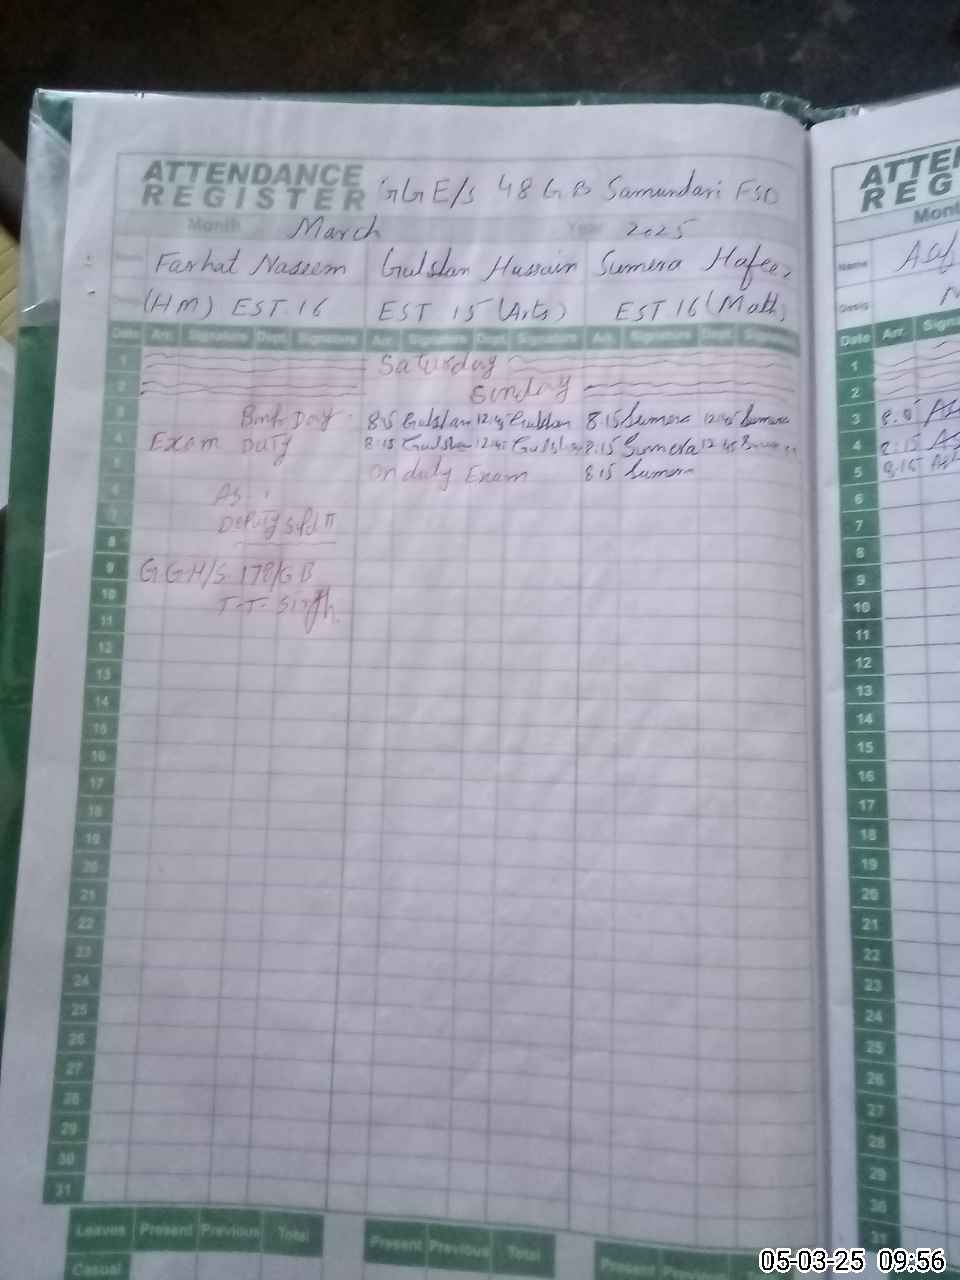 ATTENDANCE
REGISTER GGE/S 48 GB Samundari FSD
Month March Year 2025
Farhat Naseem Gulstan Hussain Sumera Hafeez
(HM) EST.16 EST 15 (Arts) EST 16 (Math)
Date Arr. Signature Dept. Signature Arr. Signature Dept. Signature Arr. Signature Dept. Signature
1 Saturday
2 Sunday
3 Day 8:15 Gulstan 12:45 Gulstan 8:15 Sumera 12:45 Sumera
4 Exam Duty 8:15 Gulstan 12:45 Gulstan 8:15 Sumera 12:45
5 on duty Exam 8:15 Sumera
6 As
7 Deputy
8
9 GGH/S 178/GB
10 T.T.
11
12
13
14
15
16
17
18
19
20
21
22
23
24
25
26
27
28
29
30
31
Leaves Present Previous Total Present Previous Total Present Previous
Casual
ATTE
REG
Mont
Name
Desig
Date Arr. Sign
1
2
3
4 8:15
5 8:15
6
7
8
9
10
11
12
13
14
15
16
17
18
19
20
21
22
23
24
25
26
27
28
29
30
31
05-03-25 09:56